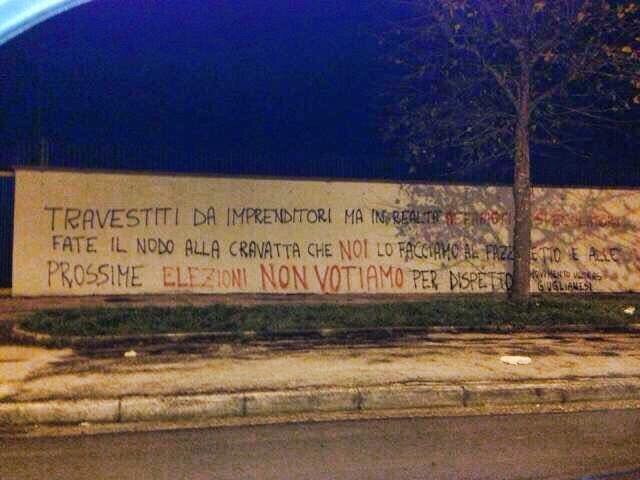 TRAVESTITI DA IMPRENDITORI MA IN REALTÀ SPECULATORI
FATE IL NODO ALLA CRAVATTA CHE NOI LO FACCIAMO AL FAZZ ETTO E ALLE
PROSSIME ELEZIONI NON VOTIAMO PER DISPETTO MOVIMENTO ULTRAS
GIUGLIANESI